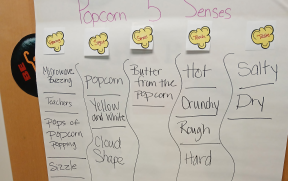 Popcorn 5 Senses
Microwave
Beeping
Teachers
Pops of
Popcorn
Popping
Sizzle
Popcorn
Yellow
and White
Cloud
Shape
Butter
from the
Popcorn
Hot
Crunchy
Rough
Hard
Salty
Dry